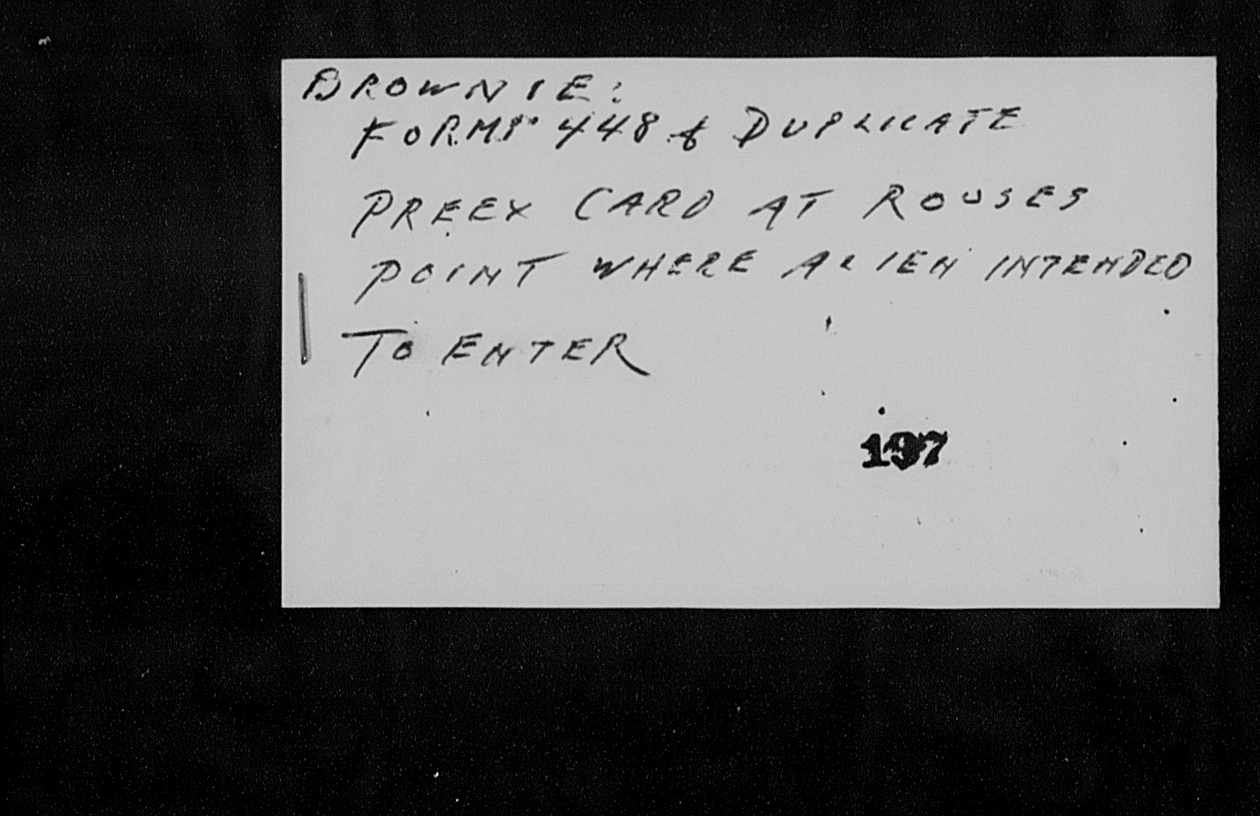 BROWNIE:
FORMS 448 & DUPLICATE
PREEX CARD AT ROUSES
POINT WHERE ALIEN INTENDED
TO ENTER
197